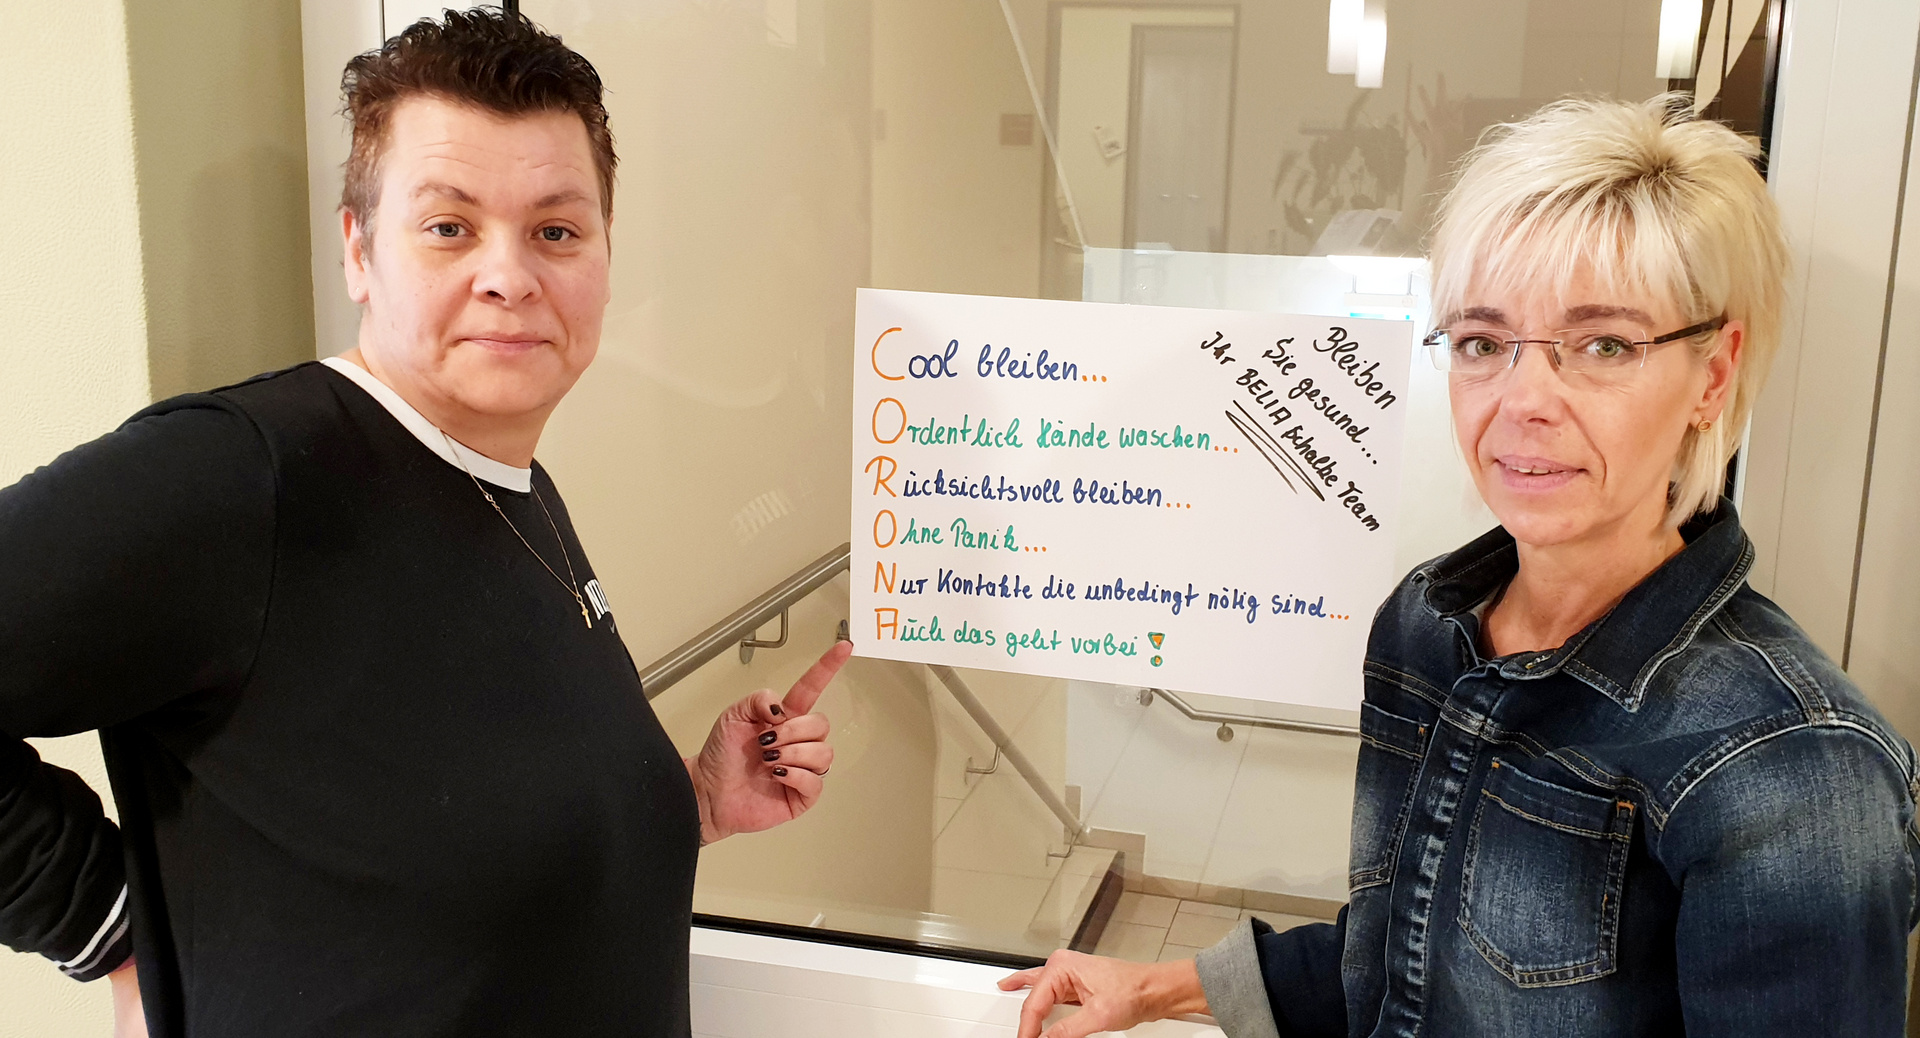 Cool bleiben...
Ordentlich Hände waschen...
Rücksichtsvoll bleiben...
Ohne Panik...
Nur Kontakte die unbedingt nötig sind...
Auch das geht vorbei!
Bleiben
Sie gesund...
Ihr BELIA Schalke Team